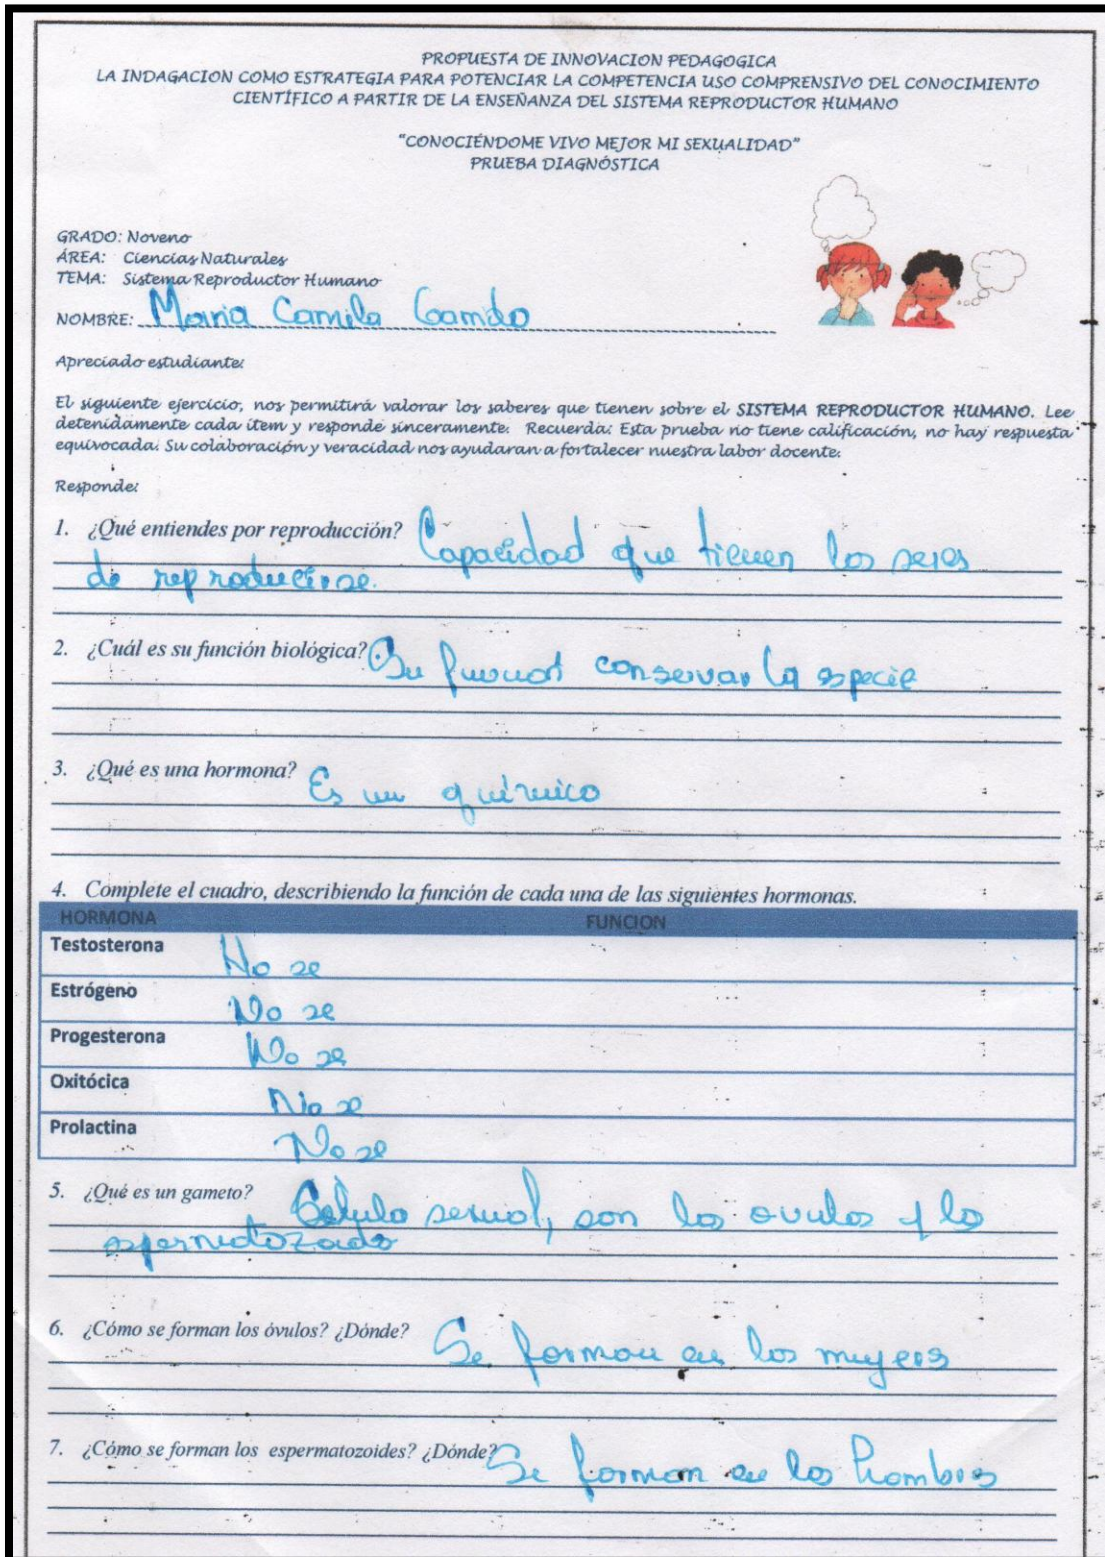 PROPUESTA DE INNOVACION PEDAGOGICA
LA INDAGACION COMO ESTRATEGIA PARA POTENCIAR LA COMPETENCIA USO COMPRENSIVO DEL CONOCIMIENTO
CIENTÍFICO A PARTIR DE LA ENSEÑANZA DEL SISTEMA REPRODUCTOR HUMANO
"CONOCIÉNDOME VIVO MEJOR MI SEXUALIDAD"
PRUEBA DIAGNÓSTICA
GRADO: Noveno
ÁREA: Ciencias Naturales
TEMA: Sistema Reproductor Humano
NOMBRE: Maria Camila
Apreciado estudiante:
El siguiente ejercicio, nos permitirá valorar los saberes que tienen sobre el SISTEMA REPRODUCTOR HUMANO. Lee
detenidamente cada ítem y responde sinceramente. Recuerda: Esta prueba no tiene calificación, no hay respuesta
equivocada. Su colaboración y veracidad nos ayudaran a fortalecer nuestra labor docente.
Responde:
1. ¿Qué entiendes por reproducción? Capacidad que tienen los seres
de reproducirse.
2. ¿Cuál es su función biológica? Su conservar la especie
3. ¿Qué es una hormona? Es un químico
4. Complete el cuadro, describiendo la función de cada una de las siguientes hormonas.
HORMONA FUNCION
Testosterona No se
Estrógeno No se
Progesterona No se
Oxitócica No se
Prolactina No se
5. ¿Qué es un gameto? Celula sexual, son los ovulos y los
6. ¿Cómo se forman los óvulos? ¿Dónde? Se forman en las mujeres
7. ¿Cómo se forman los espermatozoides? ¿Dónde? Se forman en los hombres